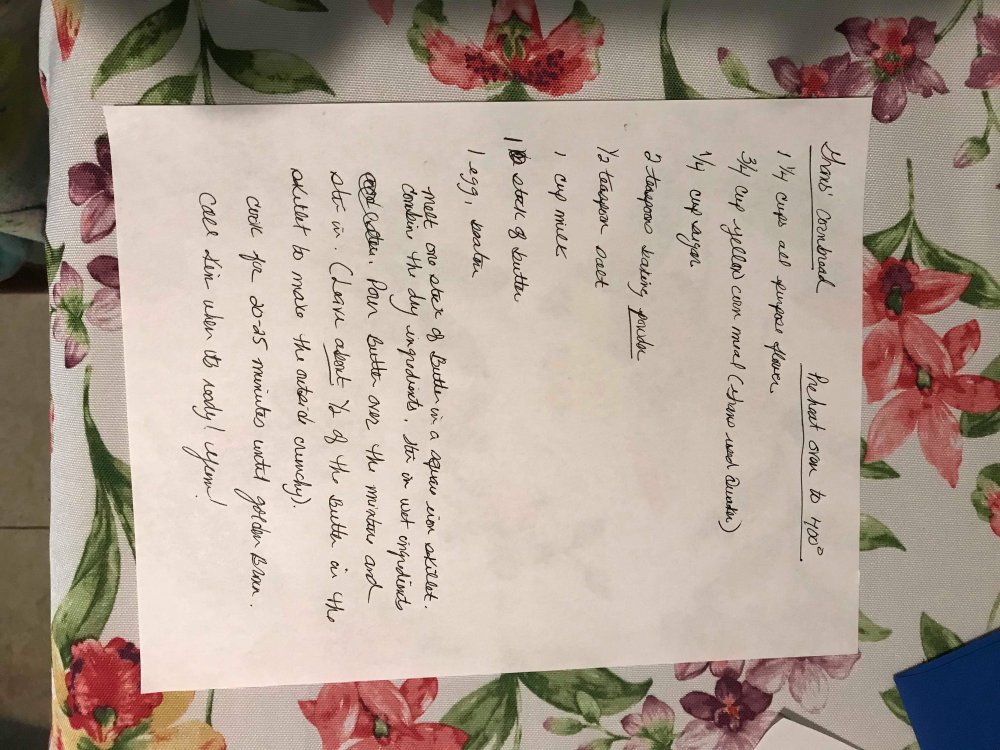 Cornbread
Preheat oven to 400°
1 1/4 cups all purpose flower
3/4 cup yellow corn meal ( used Quaker)
1/4 cup sugar
2 teaspoons baking powder
1/2 teaspoon salt
1 cup milk
1 stick of butter
1 egg, beaten
melt one stick of Butter in a square iron skillet.
Combine the dry ingredients. Stir in wet ingredients
Pour Butter over the mixture and
stir in. (Leave about 1/2 of the Butter in the
skillet to make the outside crunchy).
Cook for 20-25 minutes until golden Brown.
Call when its ready! Yumm!